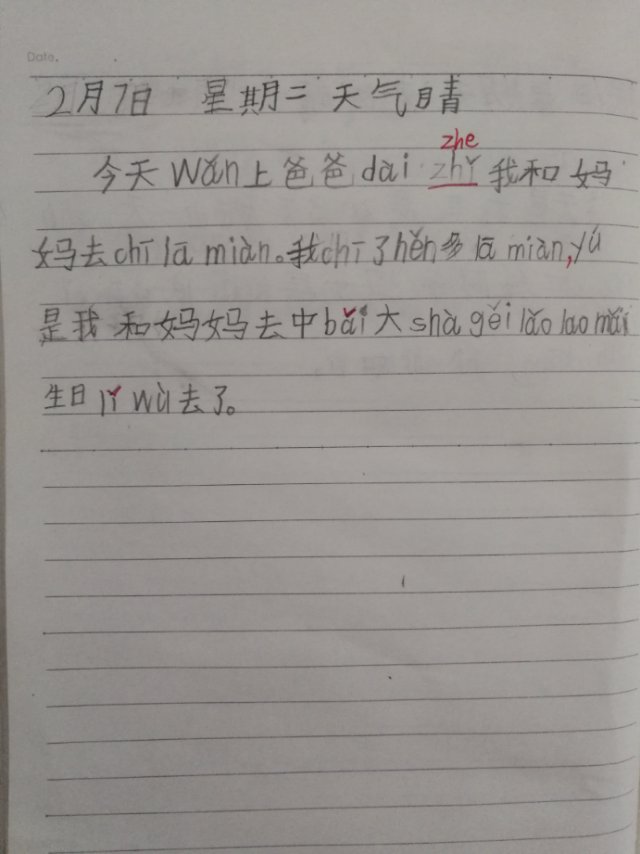 Date.
2月7日 星期二 天气晴
zhe
今天wǎn上爸爸dài zhǐ 我和妈
妈去chī lā miàn。我chī了hěn多lā miàn,yú
是我和妈妈去中bǎi大shà gěi lǎo lao mǎi
生日lǐ wù去了。